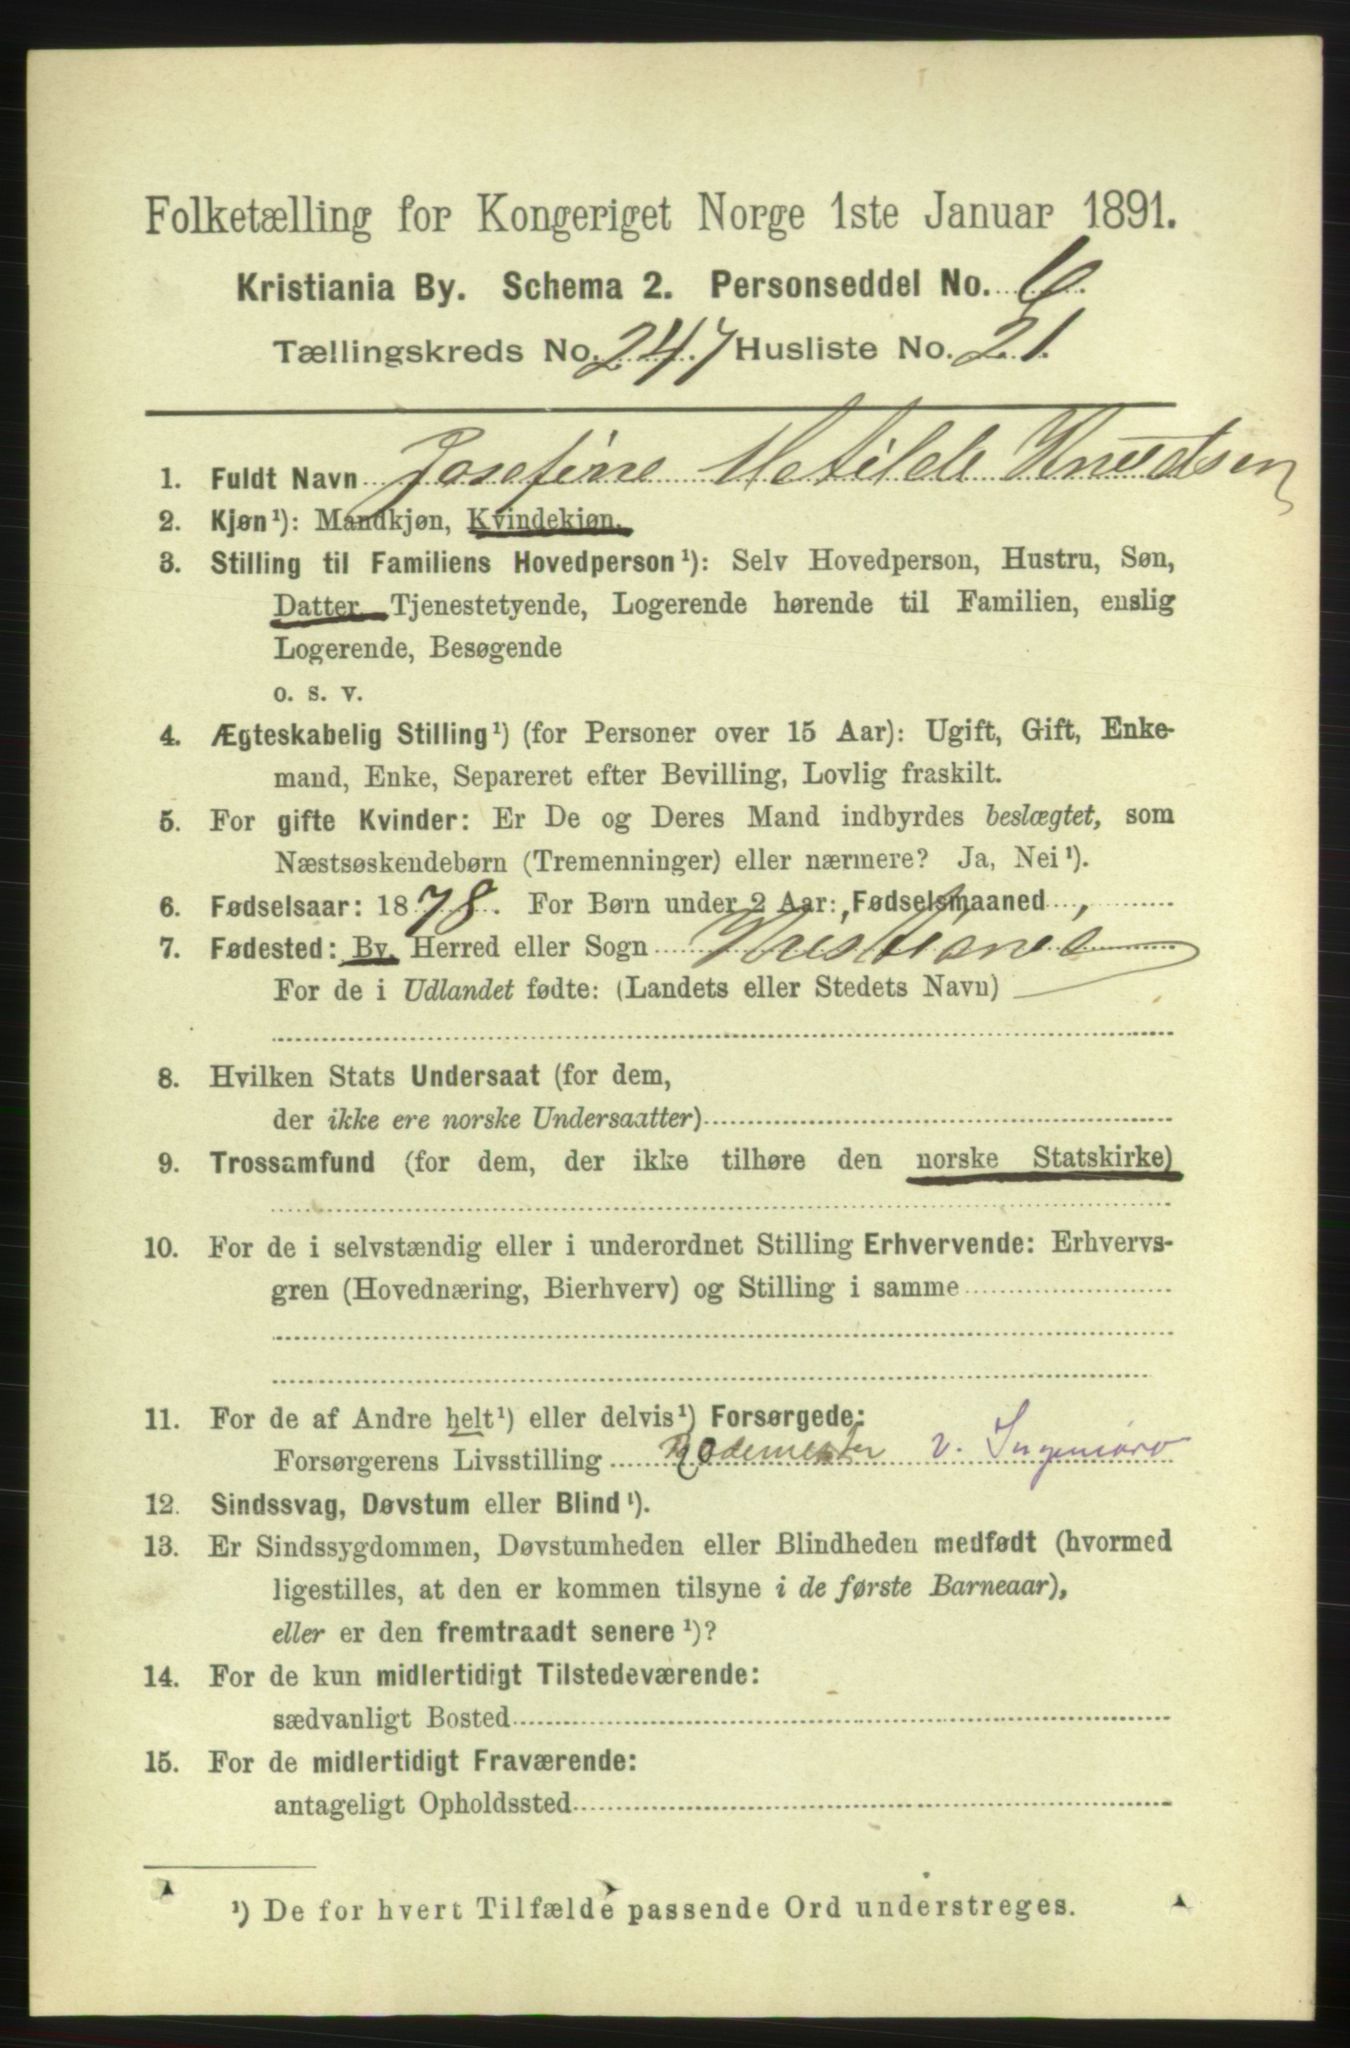 Folketælling for Kongeriget Norge 1ste Januar 1891.
Kristiania By. Schema 2. Personseddel No. 6
Tællingskreds No. 247 Husliste No. 21.
1. Fuldt Navn Josefine Matilde Knudtsen
2. Kjøn¹): Mandkjøn, Kvindekjøn.
3. Stilling til Familiens Hovedperson¹): Selv Hovedperson, Hustru, Søn,
Datter, Tjenestetyende, Logerende hørende til Familien, enslig
Logerende, Besøgende
o. s. v.
4. Ægteskabelig Stilling¹) (for Personer over 15 Aar): Ugift, Gift, Enke-
mand, Enke, Separeret efter Bevilling, Lovlig fraskilt.
5. For gifte Kvinder: Er De og Deres Mand indbyrdes beslægtet, som
Næstsøskendebørn (Tremenninger) eller nærmere? Ja, Nei¹).
6. Fødselsaar: 1878. For Børn under 2 Aar: Fødselsmaaned
7. Fødested: By, Herred eller Sogn Kristiania
For de i Udlandet fødte: (Landets eller Stedets Navn)
8. Hvilken Stats Undersaat (for dem,
der ikke ere norske Undersaatter)
9. Trossamfund (for dem, der ikke tilhøre den norske Statskirke)
10. For de i selvstændig eller i underordnet Stilling Erhvervende: Erhvervs-
gren (Hovednæring, Bierhverv) og Stilling i samme
11. For de af Andre helt¹) eller delvis¹) Forsørgede:
Forsørgerens Livsstilling Rodemester v. Ingeniørv
12. Sindssvag, Døvstum eller Blind¹).
13. Er Sindssygdommen, Døvstumheden eller Blindheden medfødt (hvormed
ligestilles, at den er kommen tilsyne i de første Barneaar),
eller er den fremtraadt senere¹)?
14. For de kun midlertidigt Tilstedeværende:
sædvanligt Bosted
15. For de midlertidigt Fraværende:
antageligt Opholdssted
¹) De for hvert Tilfælde passende Ord understreges.